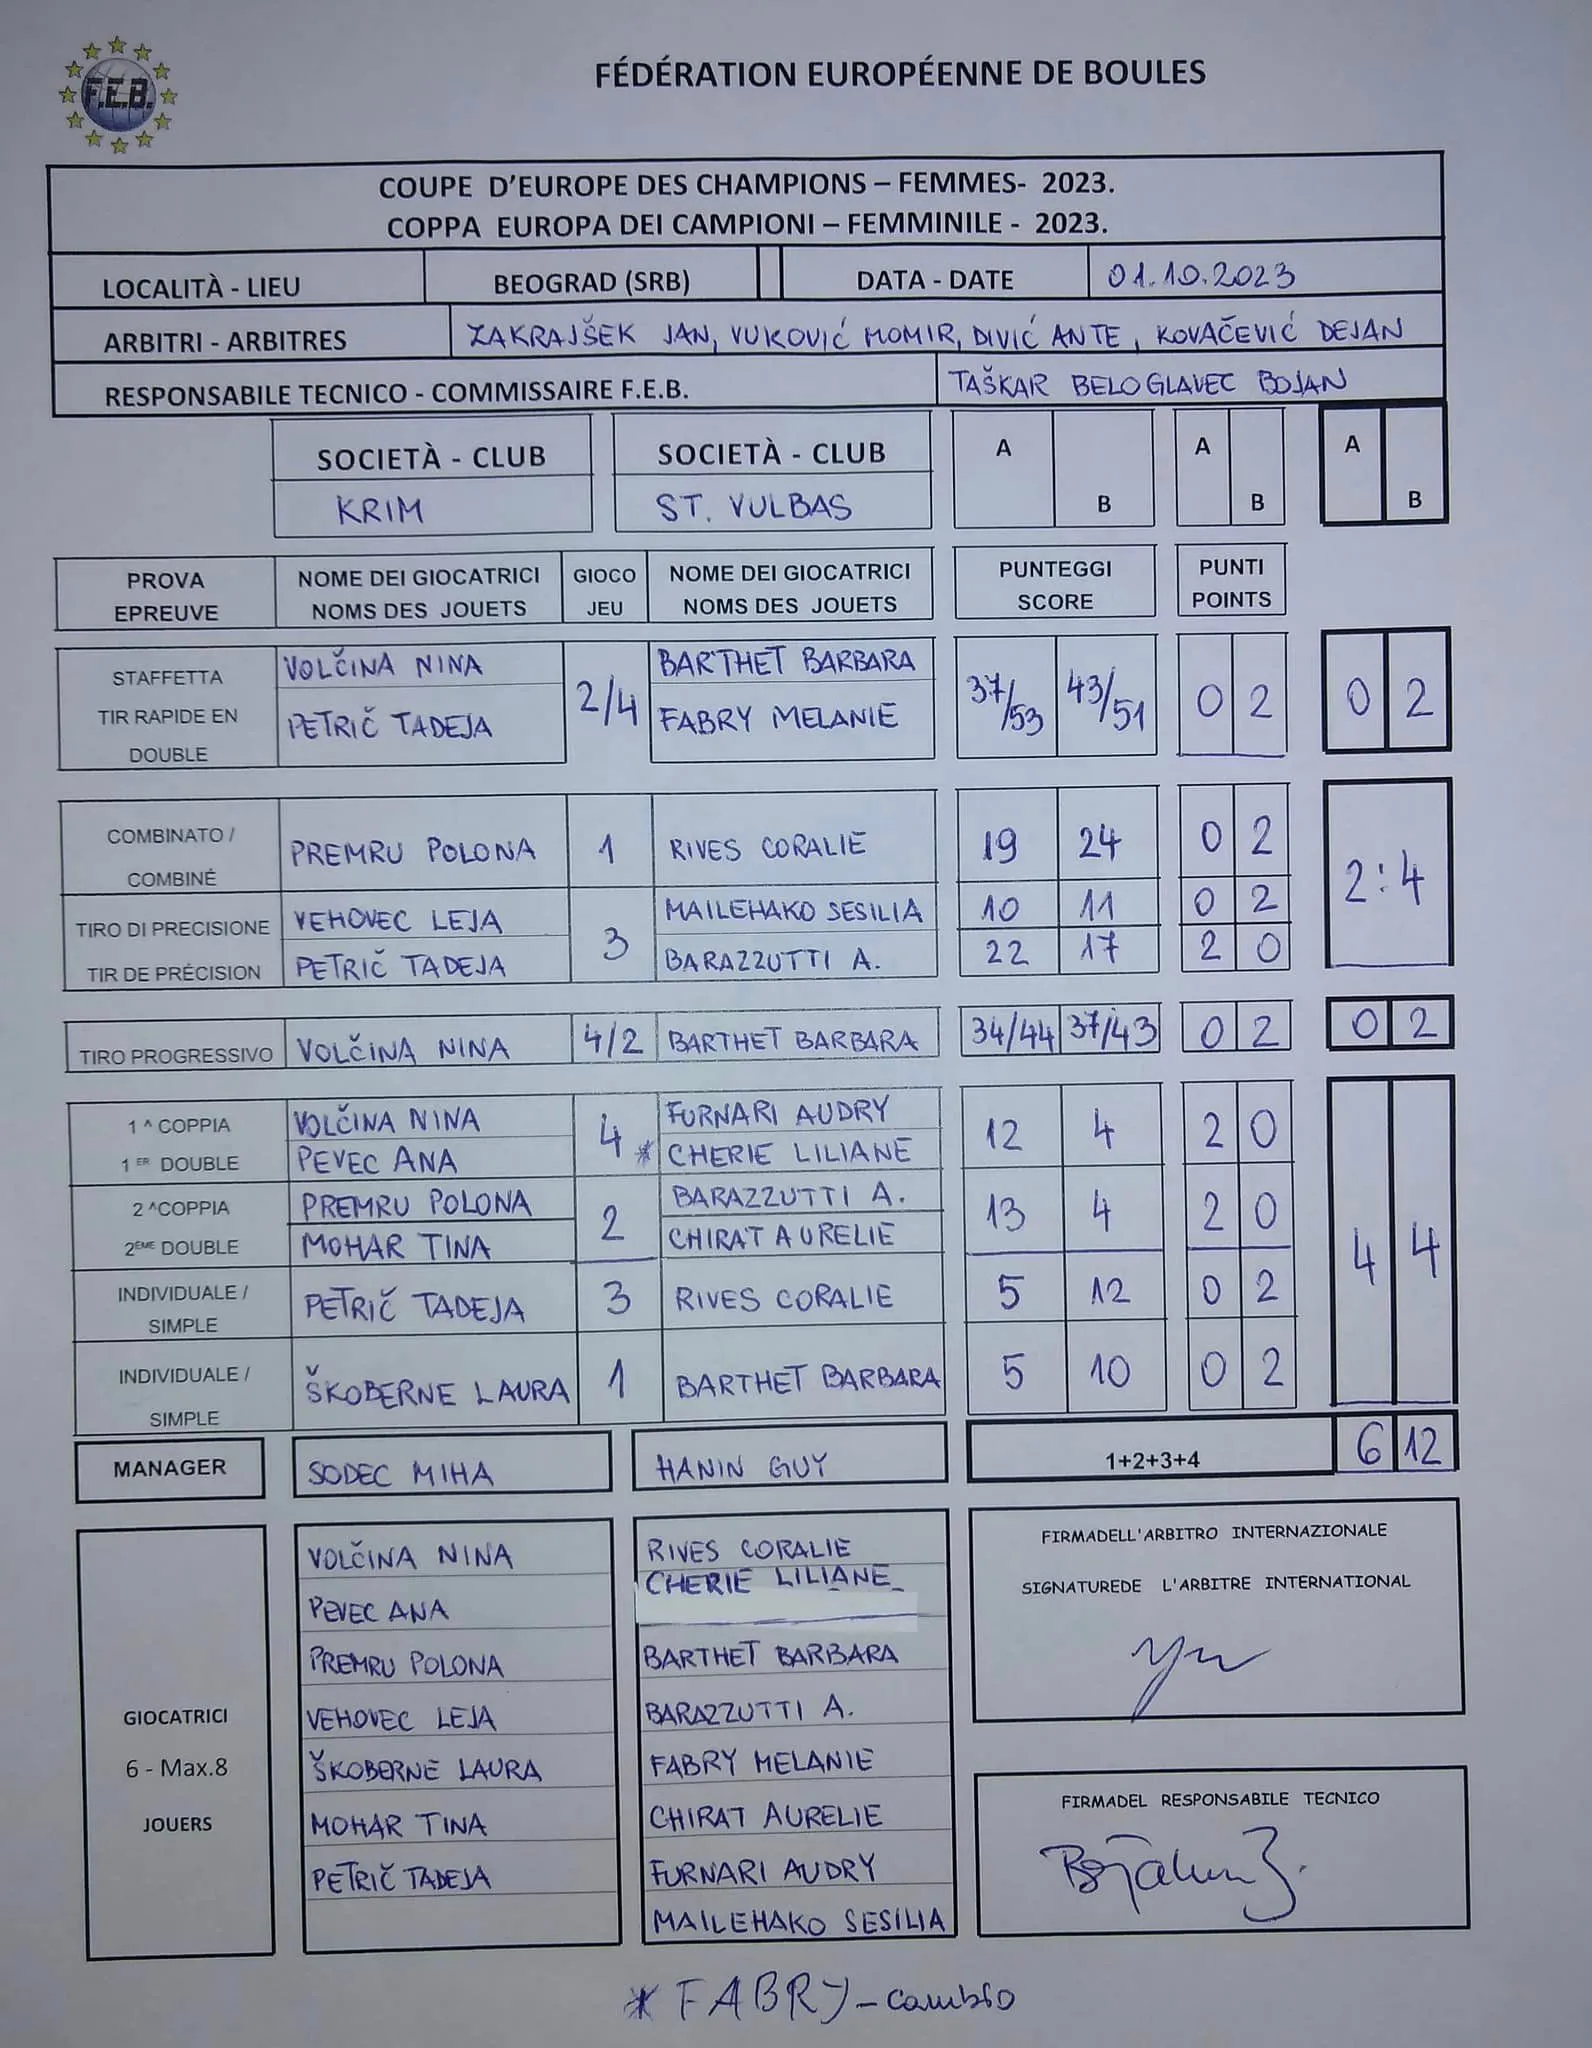 F.E.B.
FÉDÉRATION EUROPÉENNE DE BOULES
COUPE D'EUROPE DES CHAMPIONS – FEMMES- 2023.
COPPA EUROPA DEI CAMPIONI – FEMMINILE - 2023.
LOCALITÀ - LIEU BEOGRAD (SRB) DATA - DATE 01.10.2023
ARBITRI - ARBITRES ZAKRAJŠEK JAN, VUKOVIĆ MOMIR, DIVIĆ ANTE, KOVAČEVIĆ DEJAN
RESPONSABILE TECNICO - COMMISSAIRE F.E.B. TAŠKAR BELOGLAVEC BOJAN
SOCIETÀ - CLUB SOCIETÀ - CLUB A A A
KRIM ST. VULBAS B B B
PROVA NOME DEI GIOCATRICI GIOCO NOME DEI GIOCATRICI PUNTEGGI PUNTI
EPREUVE NOMS DES JOUETS JEU NOMS DES JOUETS SCORE POINTS
STAFFETTA VOLČINA NINA BARTHET BARBARA
TIR RAPIDE EN 2/4 37/53 43/51 0 2 0 2
DOUBLE PETRIČ TADEJA FABRY MELANIE
COMBINATO /
COMBINÉ PREMRU POLONA 1 RIVES CORALIE 19 24 0 2 2:4
TIRO DI PRECISIONE VEHOVEC LEJA 3 MAILEHAKO SESILIA 10 11 0 2
TIR DE PRÉCISION PETRIČ TADEJA BARAZZUTTI A. 22 17 2 0
TIRO PROGRESSIVO VOLČINA NINA 4/2 BARTHET BARBARA 34/44 37/43 0 2 0 2
1 ^ COPPIA VOLČINA NINA 4 FURNARI AUDRY 12 4 2 0
1 ER DOUBLE PEVEC ANA * CHERIE LILIANE
2 ^COPPIA PREMRU POLONA 2 BARAZZUTTI A. 13 4 2 0
2ÈME DOUBLE MOHAR TINA CHIRAT AURELIE 4 4
INDIVIDUALE /
SIMPLE PETRIČ TADEJA 3 RIVES CORALIE 5 12 0 2
INDIVIDUALE /
SIMPLE ŠKOBERNE LAURA 1 BARTHET BARBARA 5 10 0 2
MANAGER SODEC MIHA HANIN GUY 1+2+3+4 6 12
VOLČINA NINA RIVES CORALIE
PEVEC ANA CHERIE LILIANE
PREMRU POLONA BARTHET BARBARA
VEHOVEC LEJA BARAZZUTTI A.
ŠKOBERNE LAURA FABRY MELANIE
MOHAR TINA CHIRAT AURELIE
PETRIČ TADEJA FURNARI AUDRY
MAILEHAKO SESILIA
GIOCATRICI
6 - Max.8
JOUERS
FIRMADELL'ARBITRO INTERNAZIONALE
SIGNATUREDE L'ARBITRE INTERNATIONAL
FIRMADEL RESPONSABILE TECNICO
* FABRY - cambio